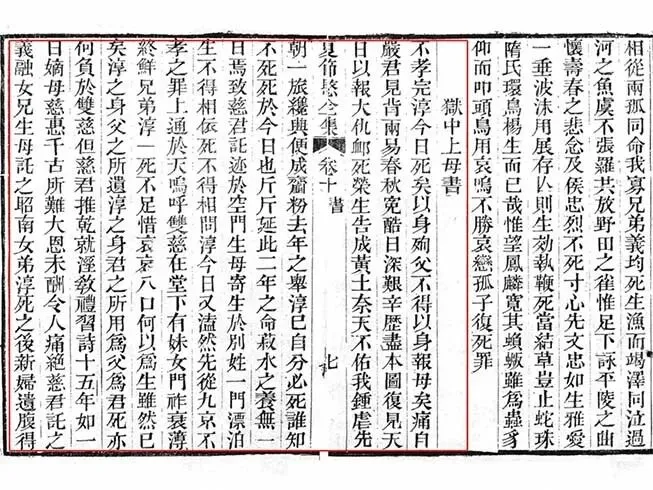 相從兩孤同命我寡兄弟義均死生漁而竭澤同泣過
河之魚虞不張羅共放野田之雀惟足下詠平陵之曲
懷壽春之悲念及侯忠烈不死寸心先文忠如生雅愛
一垂波沫用展存亾則生効執鞭死當結草豈止蛇珠
隋氏環鳥楊生而已哉惟望鳳麟寬其蟻蝂雖爲蟲豸
仰而叩頭鳥用哀鳴不勝哀戀孤子復死罪
獄中上母書
不孝完淳今日死矣以身殉父不得以身報母矣痛自
嚴君見背兩易春秋寃酷日深艱辛歷盡本圖復見天
日以報大仇卹死榮生告成黃土奈天不佑我鍾虐先
夏節愍全集 卷十 書 七
朝一旅纔興便成齏粉去年之舉淳已自分必死誰知
不死死於今日也斤斤延此二年之命菽水之養無一
日焉致慈君託迹於空門生母寄生於別姓一門漂泊
生不得相依死不得相問淳今日又溘然先從九京不
孝之罪上通於天嗚呼雙慈在堂下有妹女門祚衰薄
終鮮兄弟淳一死不足惜哀哀八口何以爲生雖然已
矣淳之身父之所遺淳之身君之所用爲父爲君死亦
何負於雙慈但慈君推乾就溼敎禮習詩十五年如一
日嫡母慈惠千古所難大恩未酬令人痛絕慈君託之
義融女兄生母託之昭南女弟淳死之後新婦遺腹得